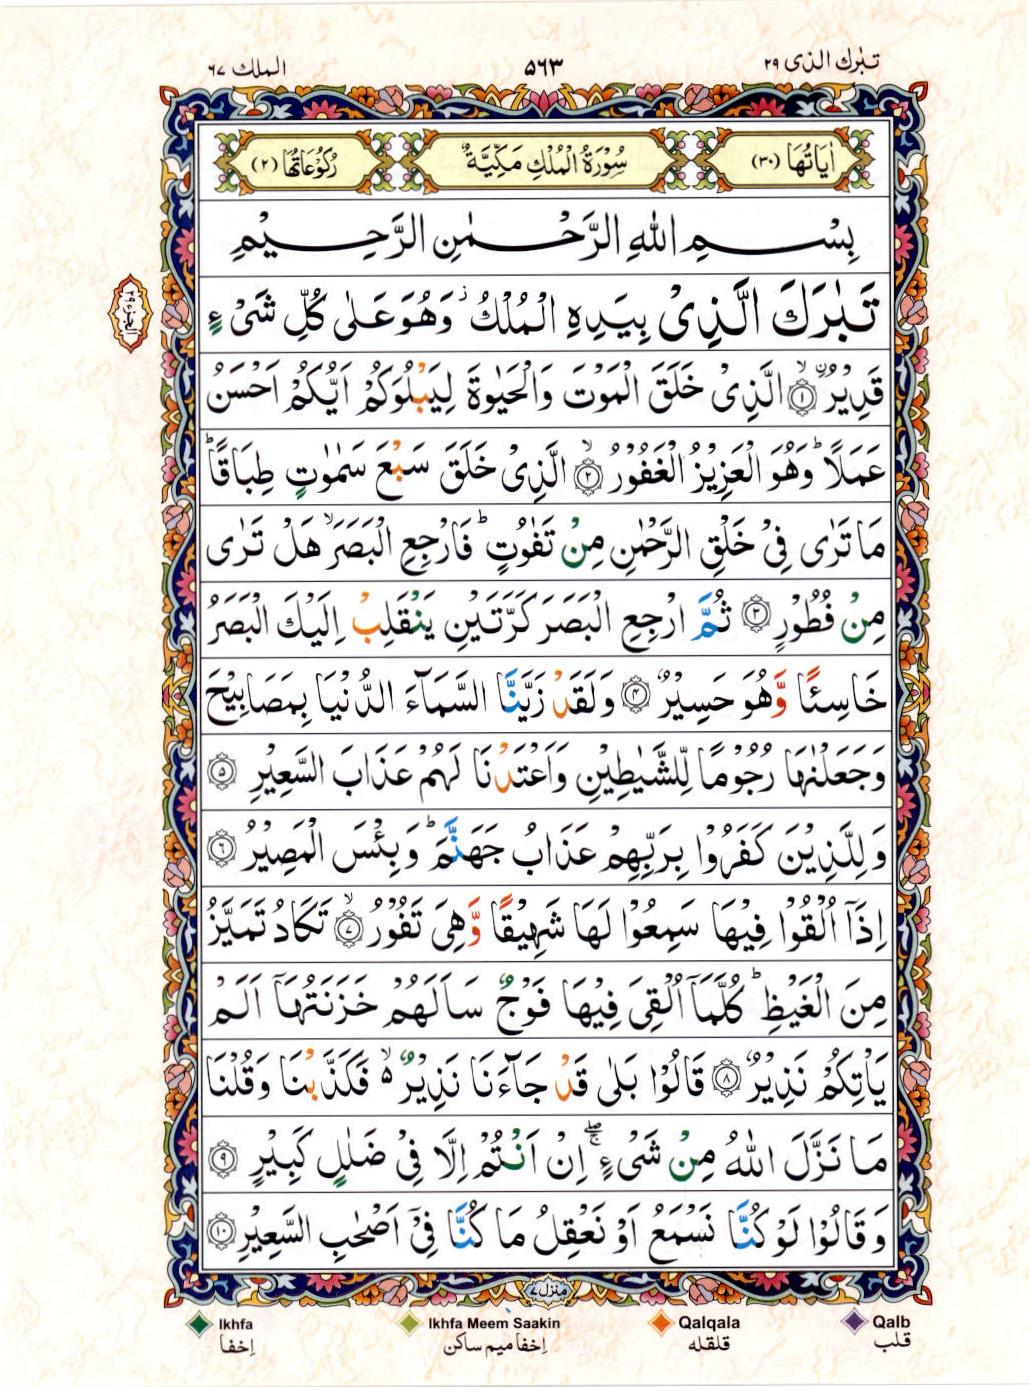 تبٰرك الذی ٢٩
٥٦٣
الملك ٦٧
اٰيَاتُهَا (٣٠)
سُوْرَةُ الْمُلْكِ مَكِّيَّةٌ
رُكُوْعَاتُهَا (٢)
بِسْمِ اللهِ الرَّحْمٰنِ الرَّحِيْمِ
تَبٰرَكَ الَّذِىْ بِيَدِهِ الْمُلْكُ ز وَهُوَ عَلٰى كُلِّ شَىْءٍ
قَدِيْرُ ۨ ۙ ﴿١﴾ الَّذِىْ خَلَقَ الْمَوْتَ وَالْحَيٰوةَ لِيَبْلُوَكُمْ اَيُّكُمْ اَحْسَنُ
عَمَلًا ؕ وَهُوَ الْعَزِيْزُ الْغَفُوْرُ ۙ ﴿٢﴾ الَّذِىْ خَلَقَ سَبْعَ سَمٰوٰتٍ طِبَاقًا ؕ
مَا تَرٰى فِىْ خَلْقِ الرَّحْمٰنِ مِنْ تَفٰوُتٍ ؕ فَارْجِعِ الْبَصَرَ ۙ هَلْ تَرٰى
مِنْ فُطُوْرٍ ﴿٣﴾ ثُمَّ ارْجِعِ الْبَصَرَ كَرَّتَيْنِ يَنْقَلِبْ اِلَيْكَ الْبَصَرُ
خَاسِئًا وَّهُوَ حَسِيْرٌ ﴿٤﴾ وَلَقَدْ زَيَّنَّا السَّمَآءَ الدُّنْيَا بِمَصَابِيْحَ
وَجَعَلْنٰهَا رُجُوْمًا لِّلشَّيٰطِيْنِ وَاَعْتَدْنَا لَهُمْ عَذَابَ السَّعِيْرِ ﴿٥﴾
وَلِلَّذِيْنَ كَفَرُوْا بِرَبِّهِمْ عَذَابُ جَهَنَّمَ ؕ وَبِئْسَ الْمَصِيْرُ ﴿٦﴾
اِذَآ اُلْقُوْا فِيْهَا سَمِعُوْا لَهَا شَهِيْقًا وَّهِىَ تَفُوْرُ ۙ ﴿٧﴾ تَكَادُ تَمَيَّزُ
مِنَ الْغَيْظِ ؕ كُلَّمَآ اُلْقِىَ فِيْهَا فَوْجٌ سَاَلَهُمْ خَزَنَتُهَآ اَلَمْ
يَاْتِكُمْ نَذِيْرٌ ﴿٨﴾ قَالُوْا بَلٰى قَدْ جَآءَنَا نَذِيْرٌ ۙ۵ فَكَذَّبْنَا وَقُلْنَا
مَا نَزَّلَ اللهُ مِنْ شَىْءٍ ۖۚ اِنْ اَنْتُمْ اِلَّا فِىْ ضَلٰلٍ كَبِيْرٍ ﴿٩﴾
وَقَالُوْا لَوْ كُنَّا نَسْمَعُ اَوْ نَعْقِلُ مَا كُنَّا فِىْٓ اَصْحٰبِ السَّعِيْرِ ﴿١٠﴾
الجزء ٢٩
منزل ٧
Ikhfa
Ikhfa Meem Saakin
Qalqala
Qalb
اِخفا
اِخفا میم ساکن
قلقله
قلب